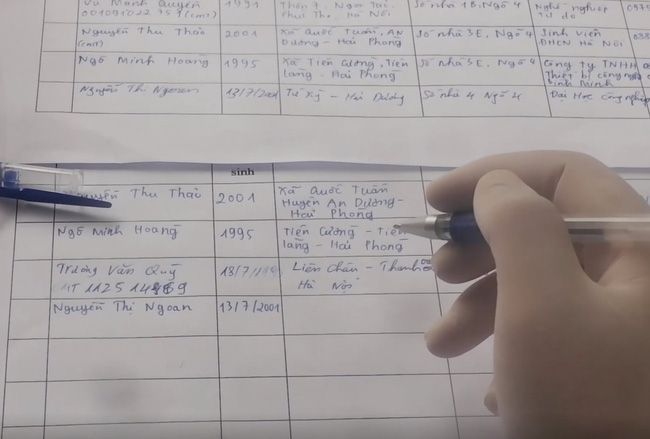 Vũ Mạnh Quyền 1991 Thôn 7, Ngọc Tảo, Số nhà 1B, Ngõ 4 Nghề nghiệp 097
(cmt) Phúc Thọ, Hà Nội tự do
Nguyễn Thu Thảo 2001 Xã Quốc Tuấn, AN Số nhà 3E, Ngõ 4 Sinh viên 038
(cmt) Dương - Hải Phòng ĐHCN Hà Nội
Ngô Minh Hoàng 1995 Xã Tiên Cường, Tiên Số nhà 3E, Ngõ 4 Công ty TNHH
Lãng - Hải Phòng Thiết bị công nghệ
Bình Minh
Nguyễn Thị Ngoan 13/7/2001 Tứ Kỳ - Hải Dương Số nhà 4 Ngõ 4 Đại Học công nghiệp
sinh
Nguyễn Thu Thảo 2001 Xã Quốc Tuấn
Huyện An Dương-
Hải Phòng
Ngô Minh Hoàng 1995 Tiên Cường - Tiên
Lãng - Hải Phòng
Trương Văn Quý 18/7/ Liên Chấn - Thanh
Hà Nội
Nguyễn Thị Ngoan 13/7/2001